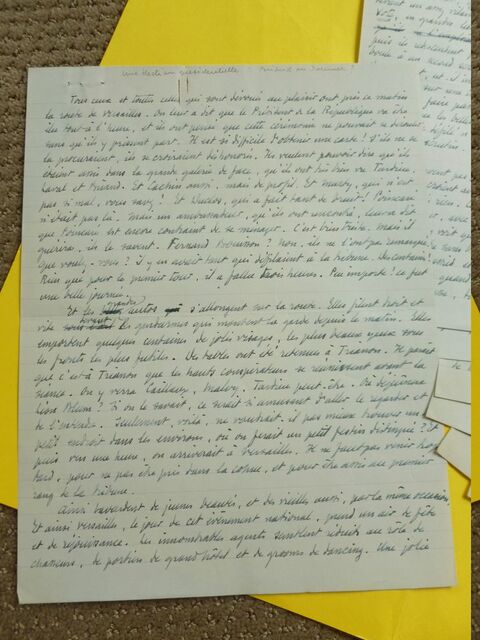 Une élection présidentielle
Tous ceux et toutes celles qui sont dévoués au plaisir ont pris ce matin
la route de Versailles. On leur a dit que le Président de la République va être
élu tout à l'heure, et ils ont pensé que cette cérémonie ne pouvait se dérouler
sans qu'ils y prissent part. Il est si difficile d'obtenir une carte ! S'ils ne se
la procuraient, ils se croiraient déshonorés. Ils veulent pouvoir dire qu'ils
étaient aussi dans la grande galerie de face, qu'ils ont très bien vu Tardieu,
Laval et Briand. Et Cachin aussi, mais de profil. Et Mandy, qui n'est
pas si mal, vous savez ! Et Duclos, qui a fait tant de bruit ! Poincaré
n'était pas là. Mais un ambassadeur, qu'ils ont rencontré, leur a dit
que Poincaré est encore contraint de se ménager. C'est bien triste. Mais il
guérira, ils le savent. Fernand Bouisson ? Non, ils ne l'ont pas remarqué.
Que voulez-vous ? Il y en avait tout qui défilaient à la tribune. Des centaines !
Rien que pour le premier tour, il a fallu trois heures. Peu importe : ce fut
une belle journée.
Et les grandes autos s'allongent sur la route. Elles filent droit et
vite devant les gendarmes qui montent la garde depuis le matin. Elles
emportent quelques centaines de jolis visages, les plus beaux yeux sous
les fronts les plus futiles. Des tables ont été retenues à Trianon. Il paraît
que c'est à Trianon que les hauts conspirateurs se réunissent avant la
séance. On y verra Caillaux, Malvy, Tardieu peut-être. Où déjeunera
Léon Blum ? Si on le savait, ce serait si amusant d'aller le regarder et
de l'entendre. Seulement, voilà, ne vaudrait-il pas mieux trouver un
petit endroit dans les environs, où on ferait un petit festin distingué ? Et
puis, vers une heure, on arriverait à Versailles. Il ne faut pas venir trop
tard, pour ne pas être pris dans la cohue, et pour être assis au premier
rang de la tribune.
Ainsi bavardent de jeunes beautés, et des vieilles aussi, par la même occasion.
Et ainsi Versailles, le jour de cet événement national, prend un air de fête
et de réjouissance. Les innombrables agents semblent réduits au rôle de
chasseurs, de portiers de grand hôtel et de grooms de dancing. Une jolie